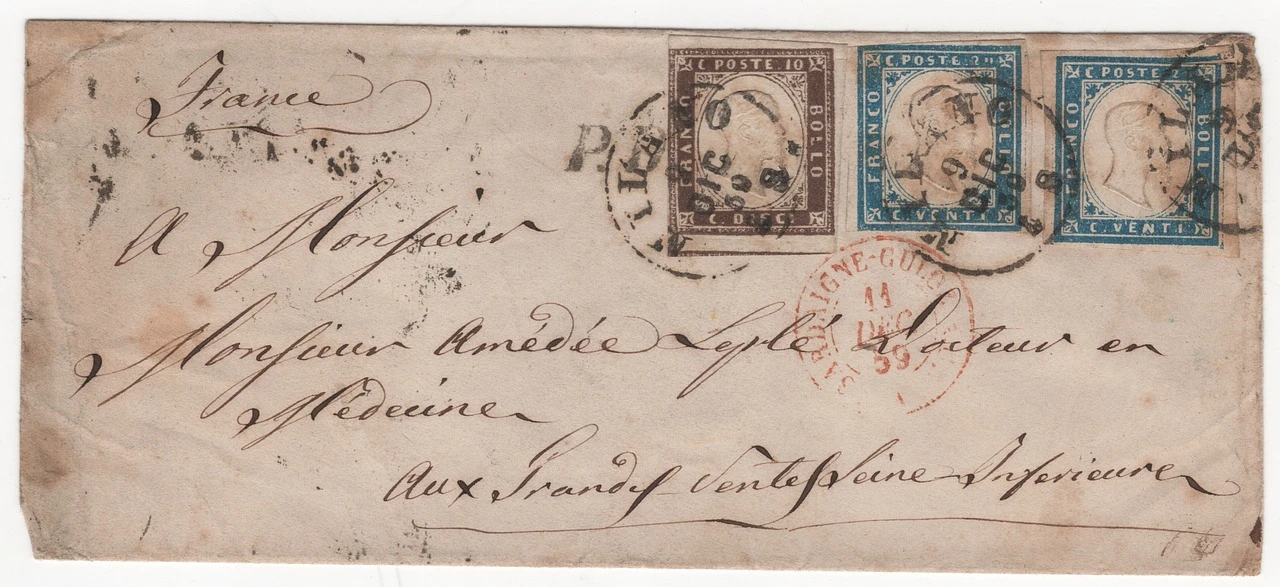 France
C. POSTE. 10
FRANCO
BOLLO
C. DIECI
C. POSTE. 20
FRANCO
BOLLO
C. VENTI
C. POSTE
FRANCO
BOLLO
C. VENTI
MILANO
9
DIC
59
8
MILANO
9
DIC
59
8
SARDAIGNE-CULOZ
11
DEC
59
A Monsieur
Monsieur Amédée Docteur en
Médecine
Aux Grandes Ventes Seine Inferieure